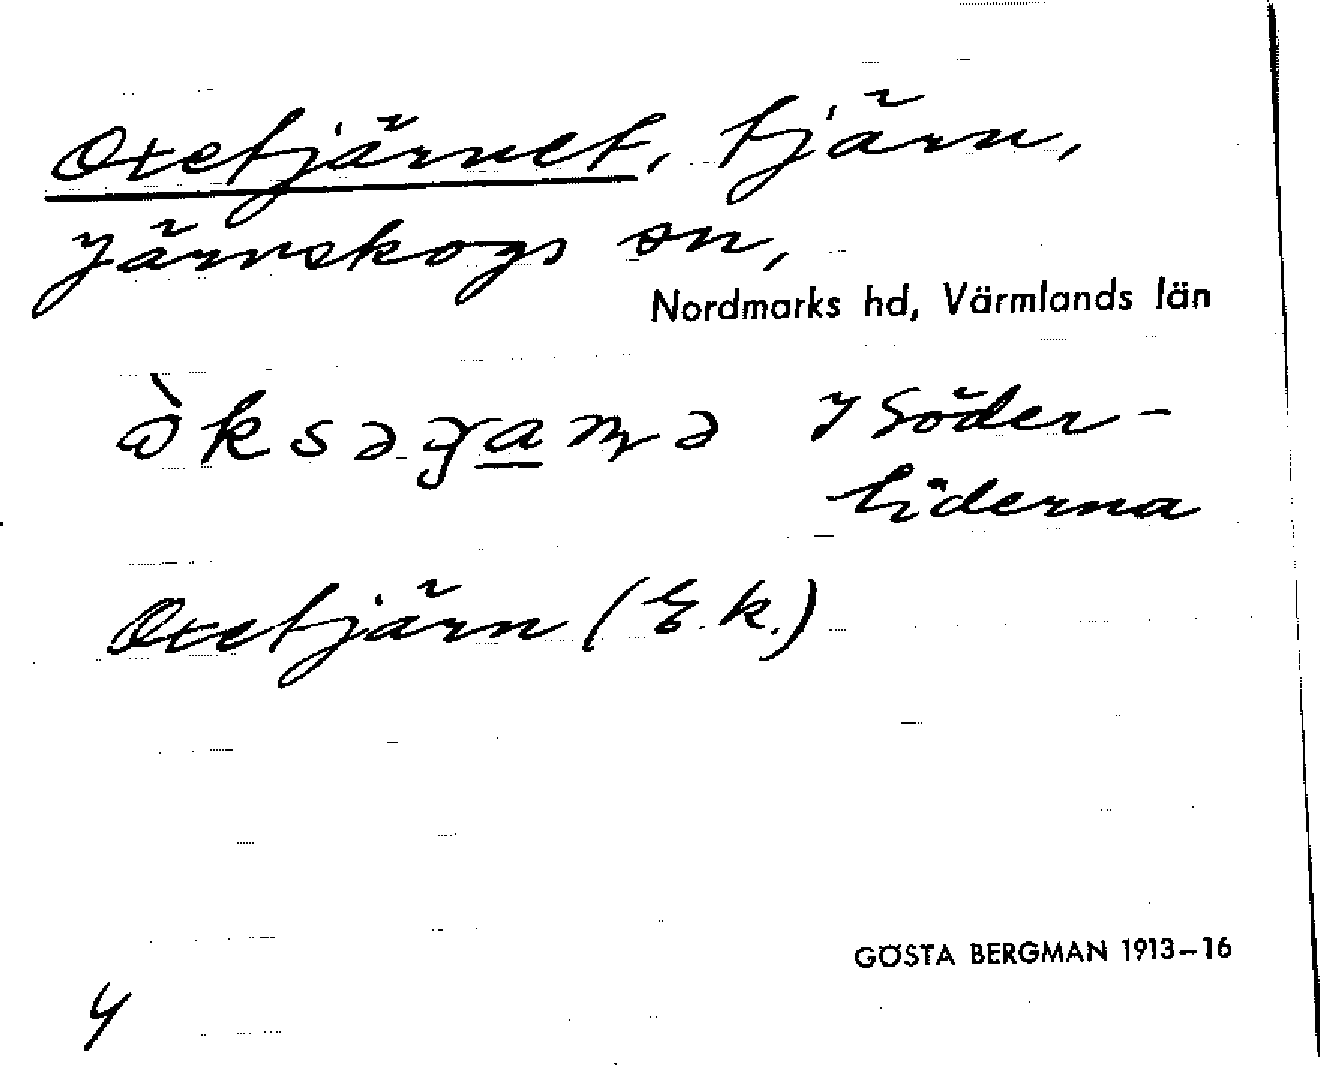 Oxetjärnet, tjärn,
Järnskogs sn,
Nordmarks hd, Värmlands län
I Söder-
liderna
Oxetjärn (E.k.)
GÖSTA BERGMAN 1913–16